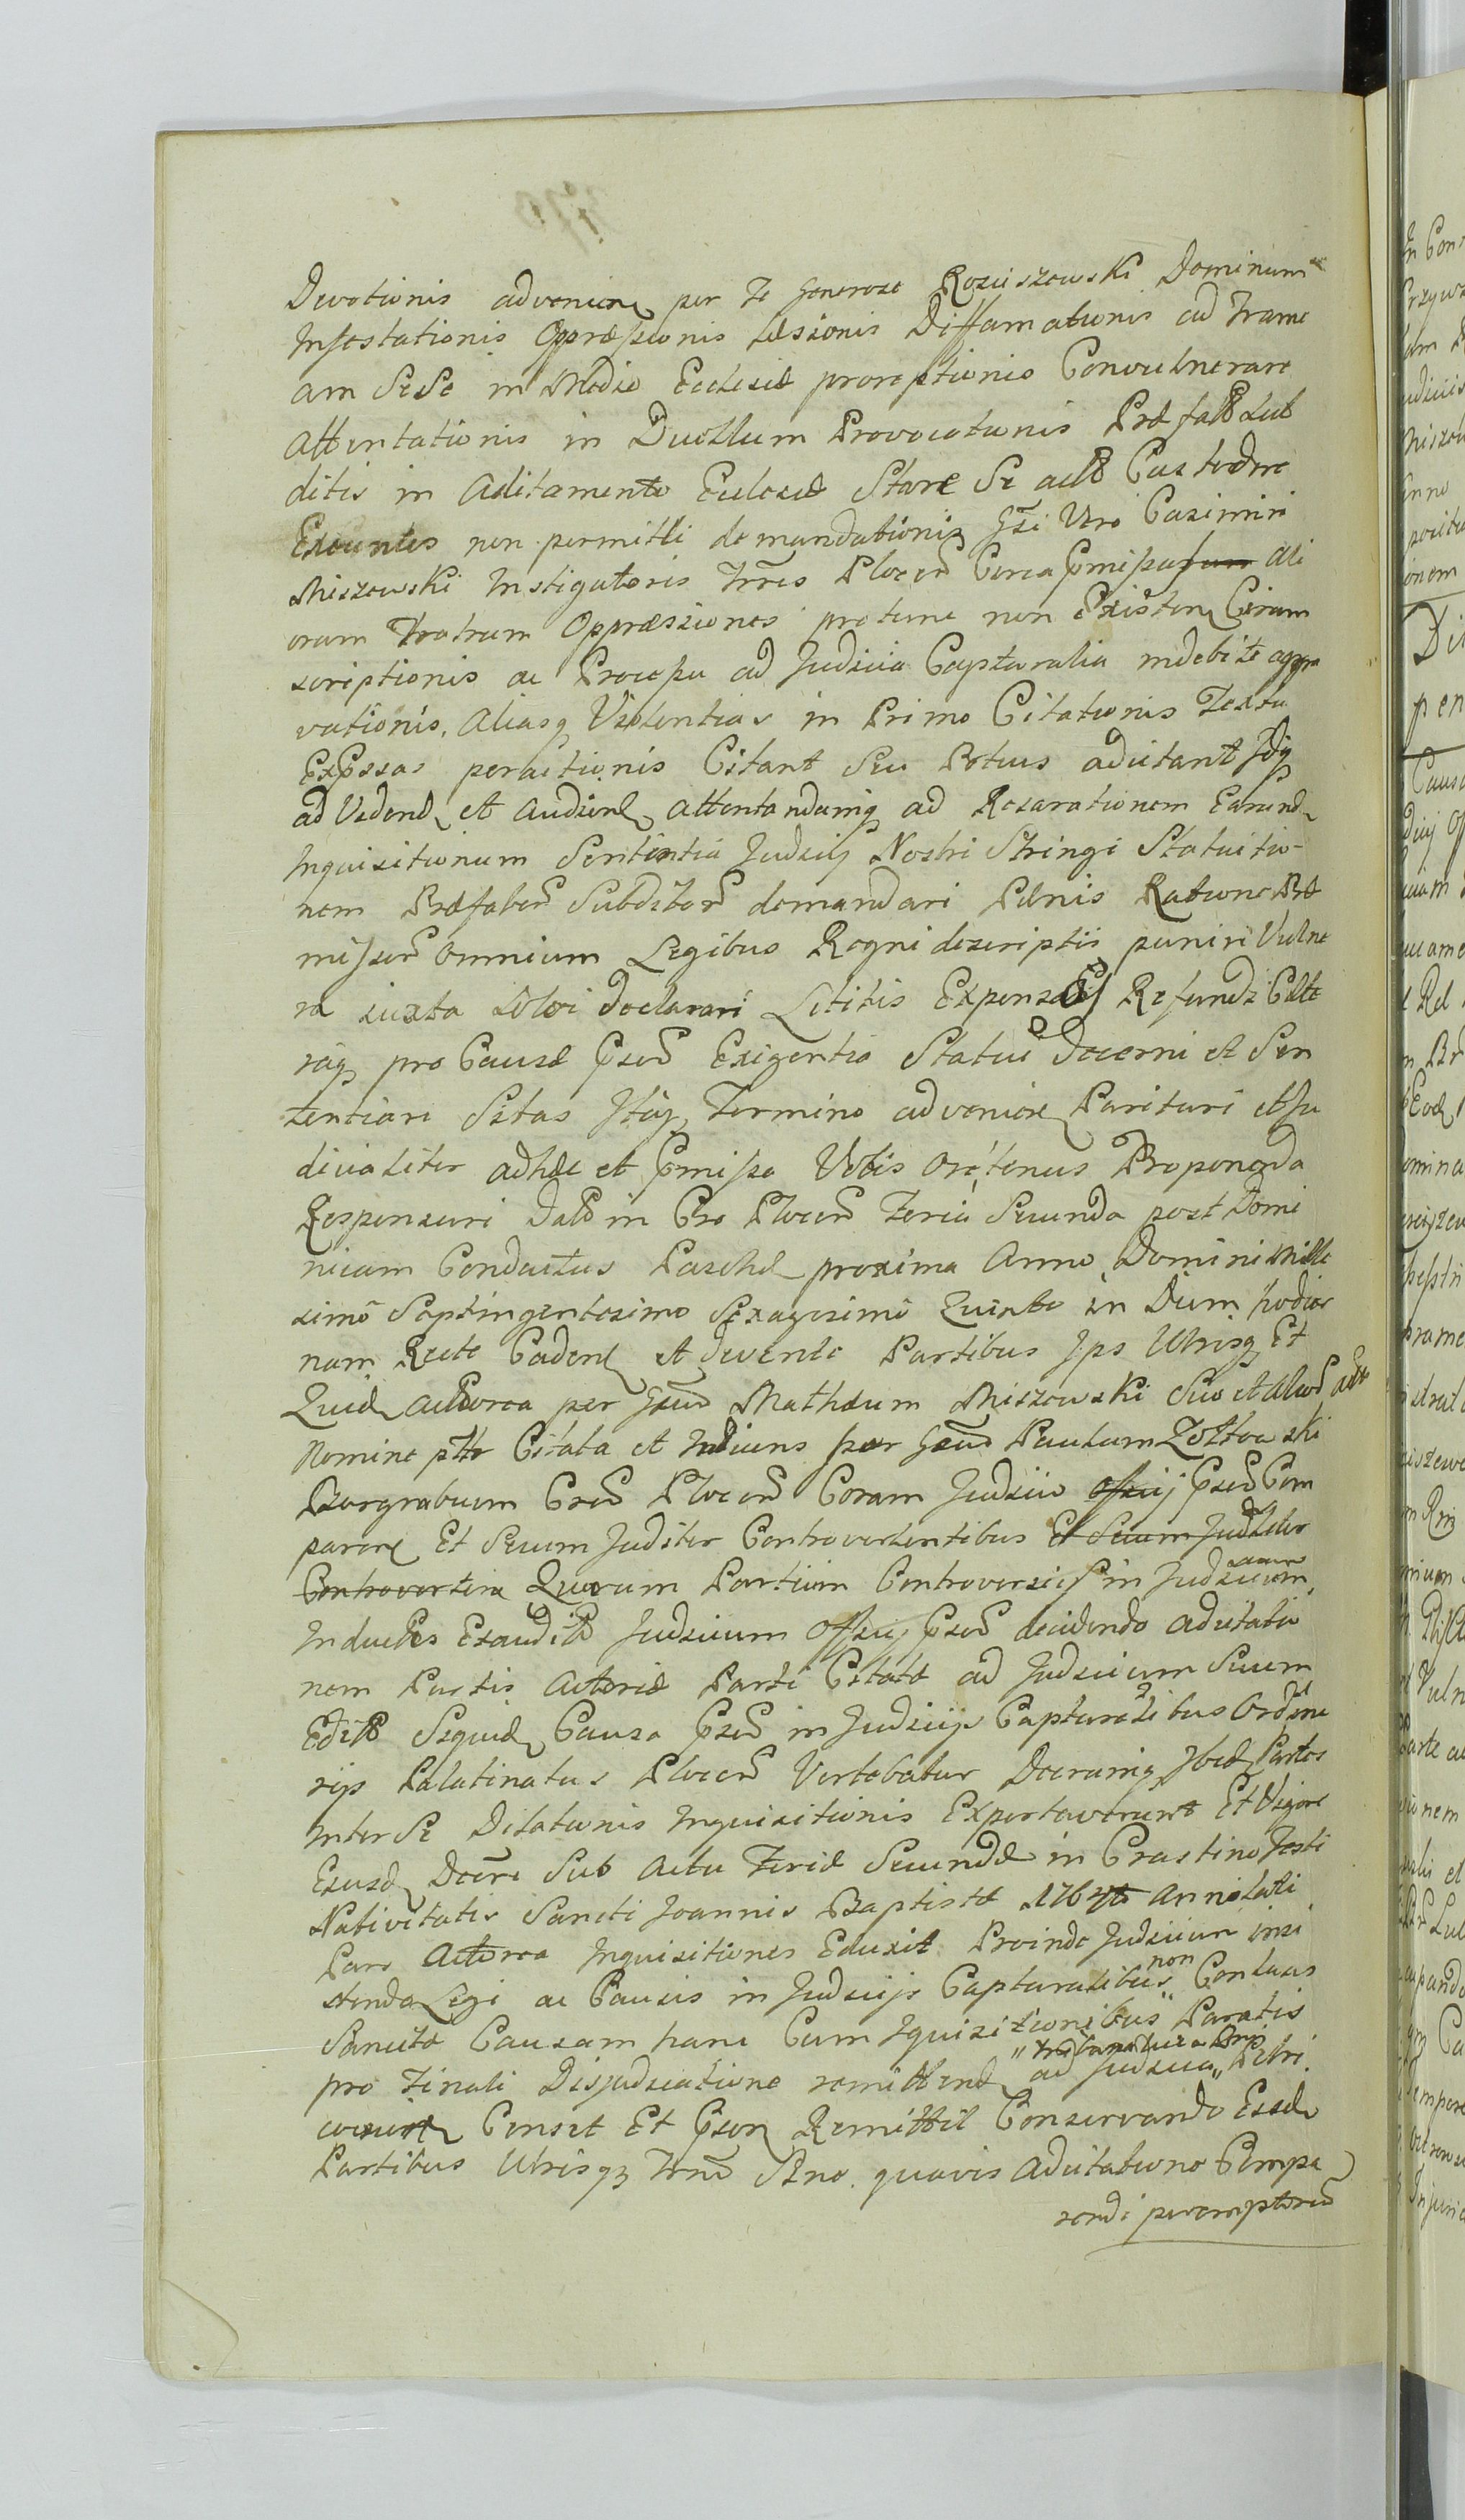 Devotionis advenien per Te Generose Rosciszewski Dominum
Infestationis Oppræssionis Læsionis Diffamationis ad Frame
am Sese in Medio Ecclesiæ proreptionis Convulnerare
attentationis in Duellum Provocationis Præfatis Sub
ditis in Aditamento Ecclesiæ Stare Se acto Custodire
Exeuntes non permitti demandationis Gsi Vero Casimiri
Miszewski Instigatoris Trris Plocen Circa Pmissa Ali
orum Fratrum Oppræssiones protunc non Existen Circum
scriptionis ac Processu ad Judicia Capturalia indebite aggra
vationis, Aliasq Violentias in Primo Citationis Textu
Expssas peractionis Citant Seu Potius adcitant Idq
ad Vidend et Audiend attentandamq ad Reserationem Earund
Inquisitionum Sententia Judicij Nostri Stringi Statuitio-
nem Præfator Subditor demandari Pænis Ratione Præ
missor Omnium Legibus Regni descriptis puniri Vulne
ra iuxta solvi declarari Litis Expensas Refundi Cæte
raq pro Causæ Pns Exigentia Statui Decerni et Sen
tentiari Sitas Itaq Termino advenien Parituri et Ju
dicialiter adhæc et Pmissa Vobis Oretenus Proponenda
Responsuri Dat in Cro Plocen Feria Secunda post Domi
nicam Conductus Paschæ proxima Anno Domini Mille
simo Septingentesimo Sexagesimo Quinto in Diem hodier
nam Recte Caden et devento Partibus Ips Utrisq Et
Quid Actorea per Gsum Mathæum Miszewski Suo et Alior
Nomine ptte Citata et Indiens per Gsum Paulum Zołtowski
Burgrabium Cren Plocen Coram Judicio Officij Psen Com
paren Et Secum Juditer Controvertentibus Et Secum Juditer
Controverten Quorum Partium Controversijs in Judicium
Inductis Exauditis Judicium Officij Psen decidendo adcitatio
nem Partis Actoreæ Parti Citatæ ad Judicium Suum
Editis Siquid Causa Psen in Judicijs Capturalibus Ordina
rijs Palatinatus Plocen Vertebatur Decrumq Ibid Partes
inter Se Dilationis Inquisitionis Exportaverunt Et Vigore
Eiusd Decre Sub Actu Feriæ Secundæ in Crastino Festi
Nativitatis Sancti Joannis Baptistæ Anni lati
Pars Actorea Inquisitiones Eduxit Proinde Judicium insi
stendo Legi ac Causis in Judicijs Capturalibus non Conclusis
Sancitæ Causam hanc Cum Iquisitionibus Paratis
pro Finali Disjudicatione remittend ad Judicia Petri
covien Censet Et Psen Remittit Conservando Eisd
Partibus Utrisq Trno Sine quavis Adcitatione Compa
rendi peremptorium